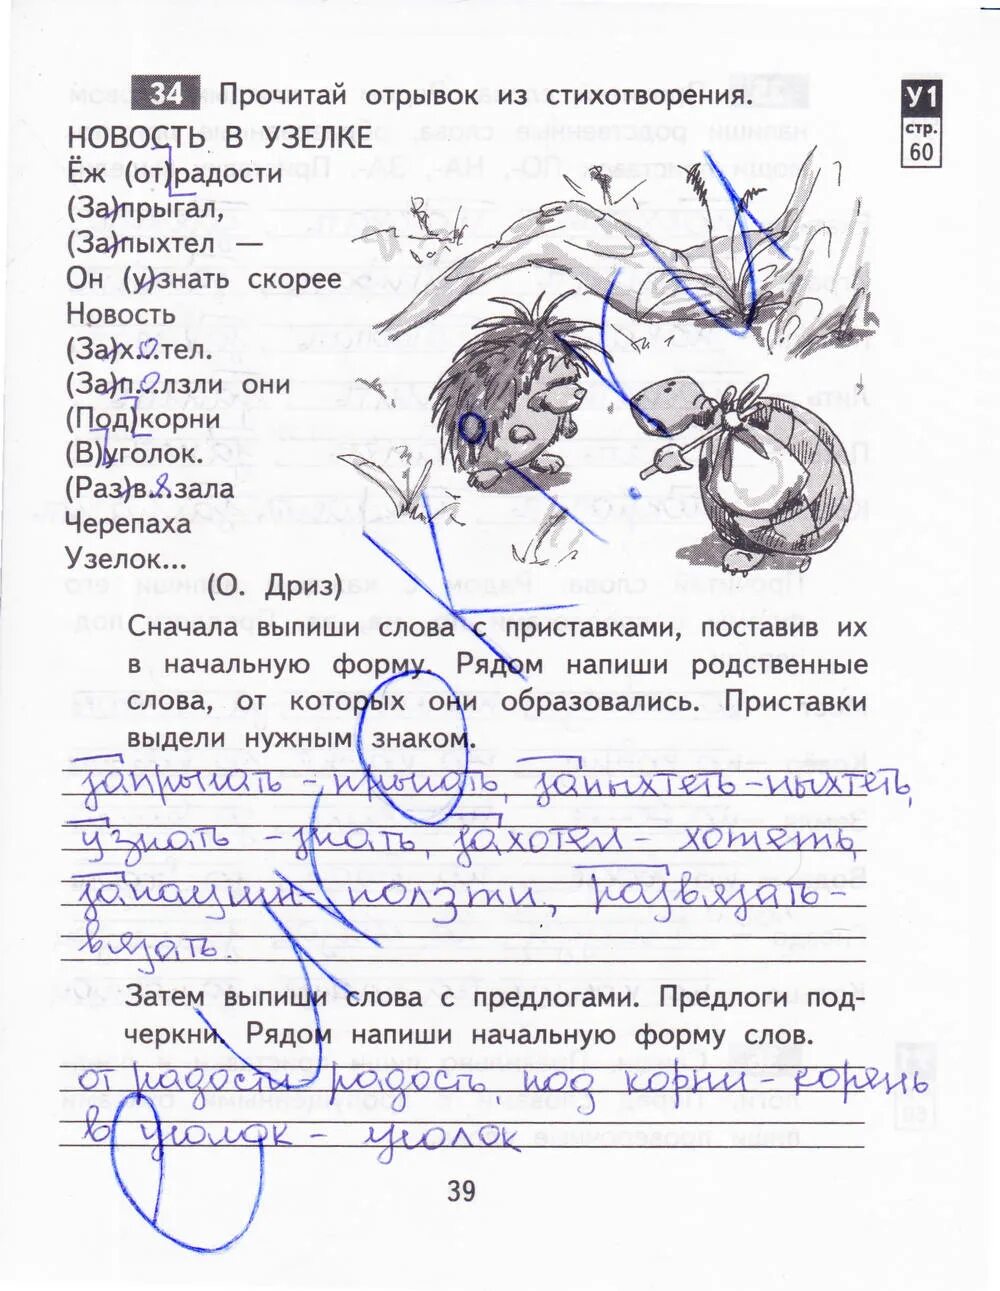 34 Прочитай отрывок из стихотворения.
У1
стр.
60
НОВОСТЬ В УЗЕЛКЕ
Ёж (от)радости
(За)прыгал,
(За)пыхтел —
Он (у)знать скорее
Новость
(За)х.о.тел.
(За)п.о.лзли они
(Под)корни
(В)уголок.
(Раз)в.я.зала
Черепаха
Узелок...
(О. Дриз)
Сначала выпиши слова с приставками, поставив их
в начальную форму. Рядом напиши родственные
слова, от которых они образовались. Приставки
выдели нужным знаком.
запрыгать - прыгать, запыхтеть - пыхтеть,
узнать - знать, захотел - хотеть,
ползти, развязать -
вязать.
Затем выпиши слова с предлогами. Предлоги под-
черкни. Рядом напиши начальную форму слов.
от радости - радость, под корни - корень
в уголок - уголок
39